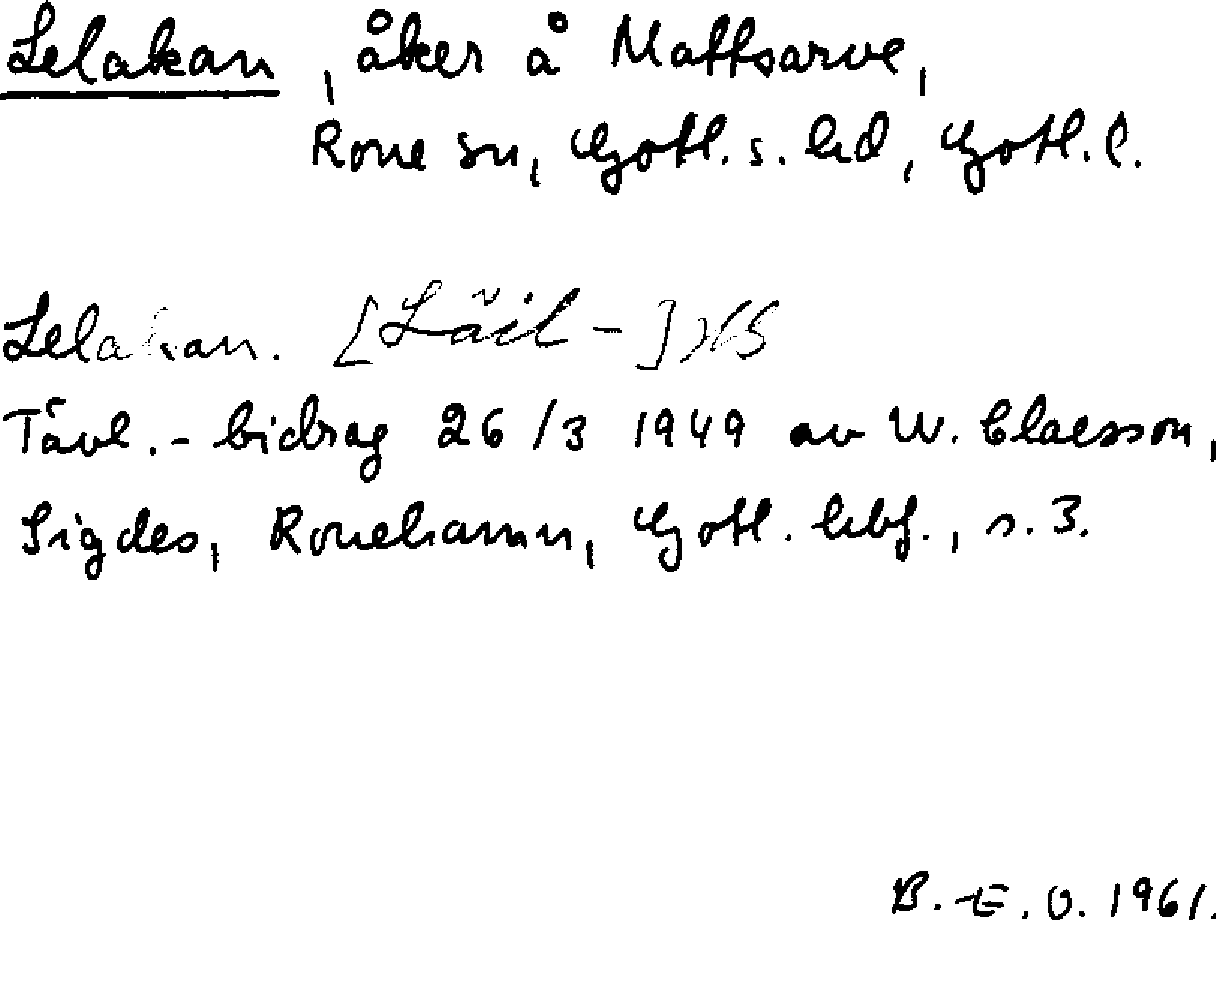 Lelakan, åker å Mattsarve,
Rone sn, Gotl. s. hd, Gotl. l.
Lelakan. [Läil-]
Tävl.-bidrag 26/3 1949 av W. Claesson,
Sigdes, Ronehamn, Gotl. hbf., s. 3.
B. E. O. 1961.